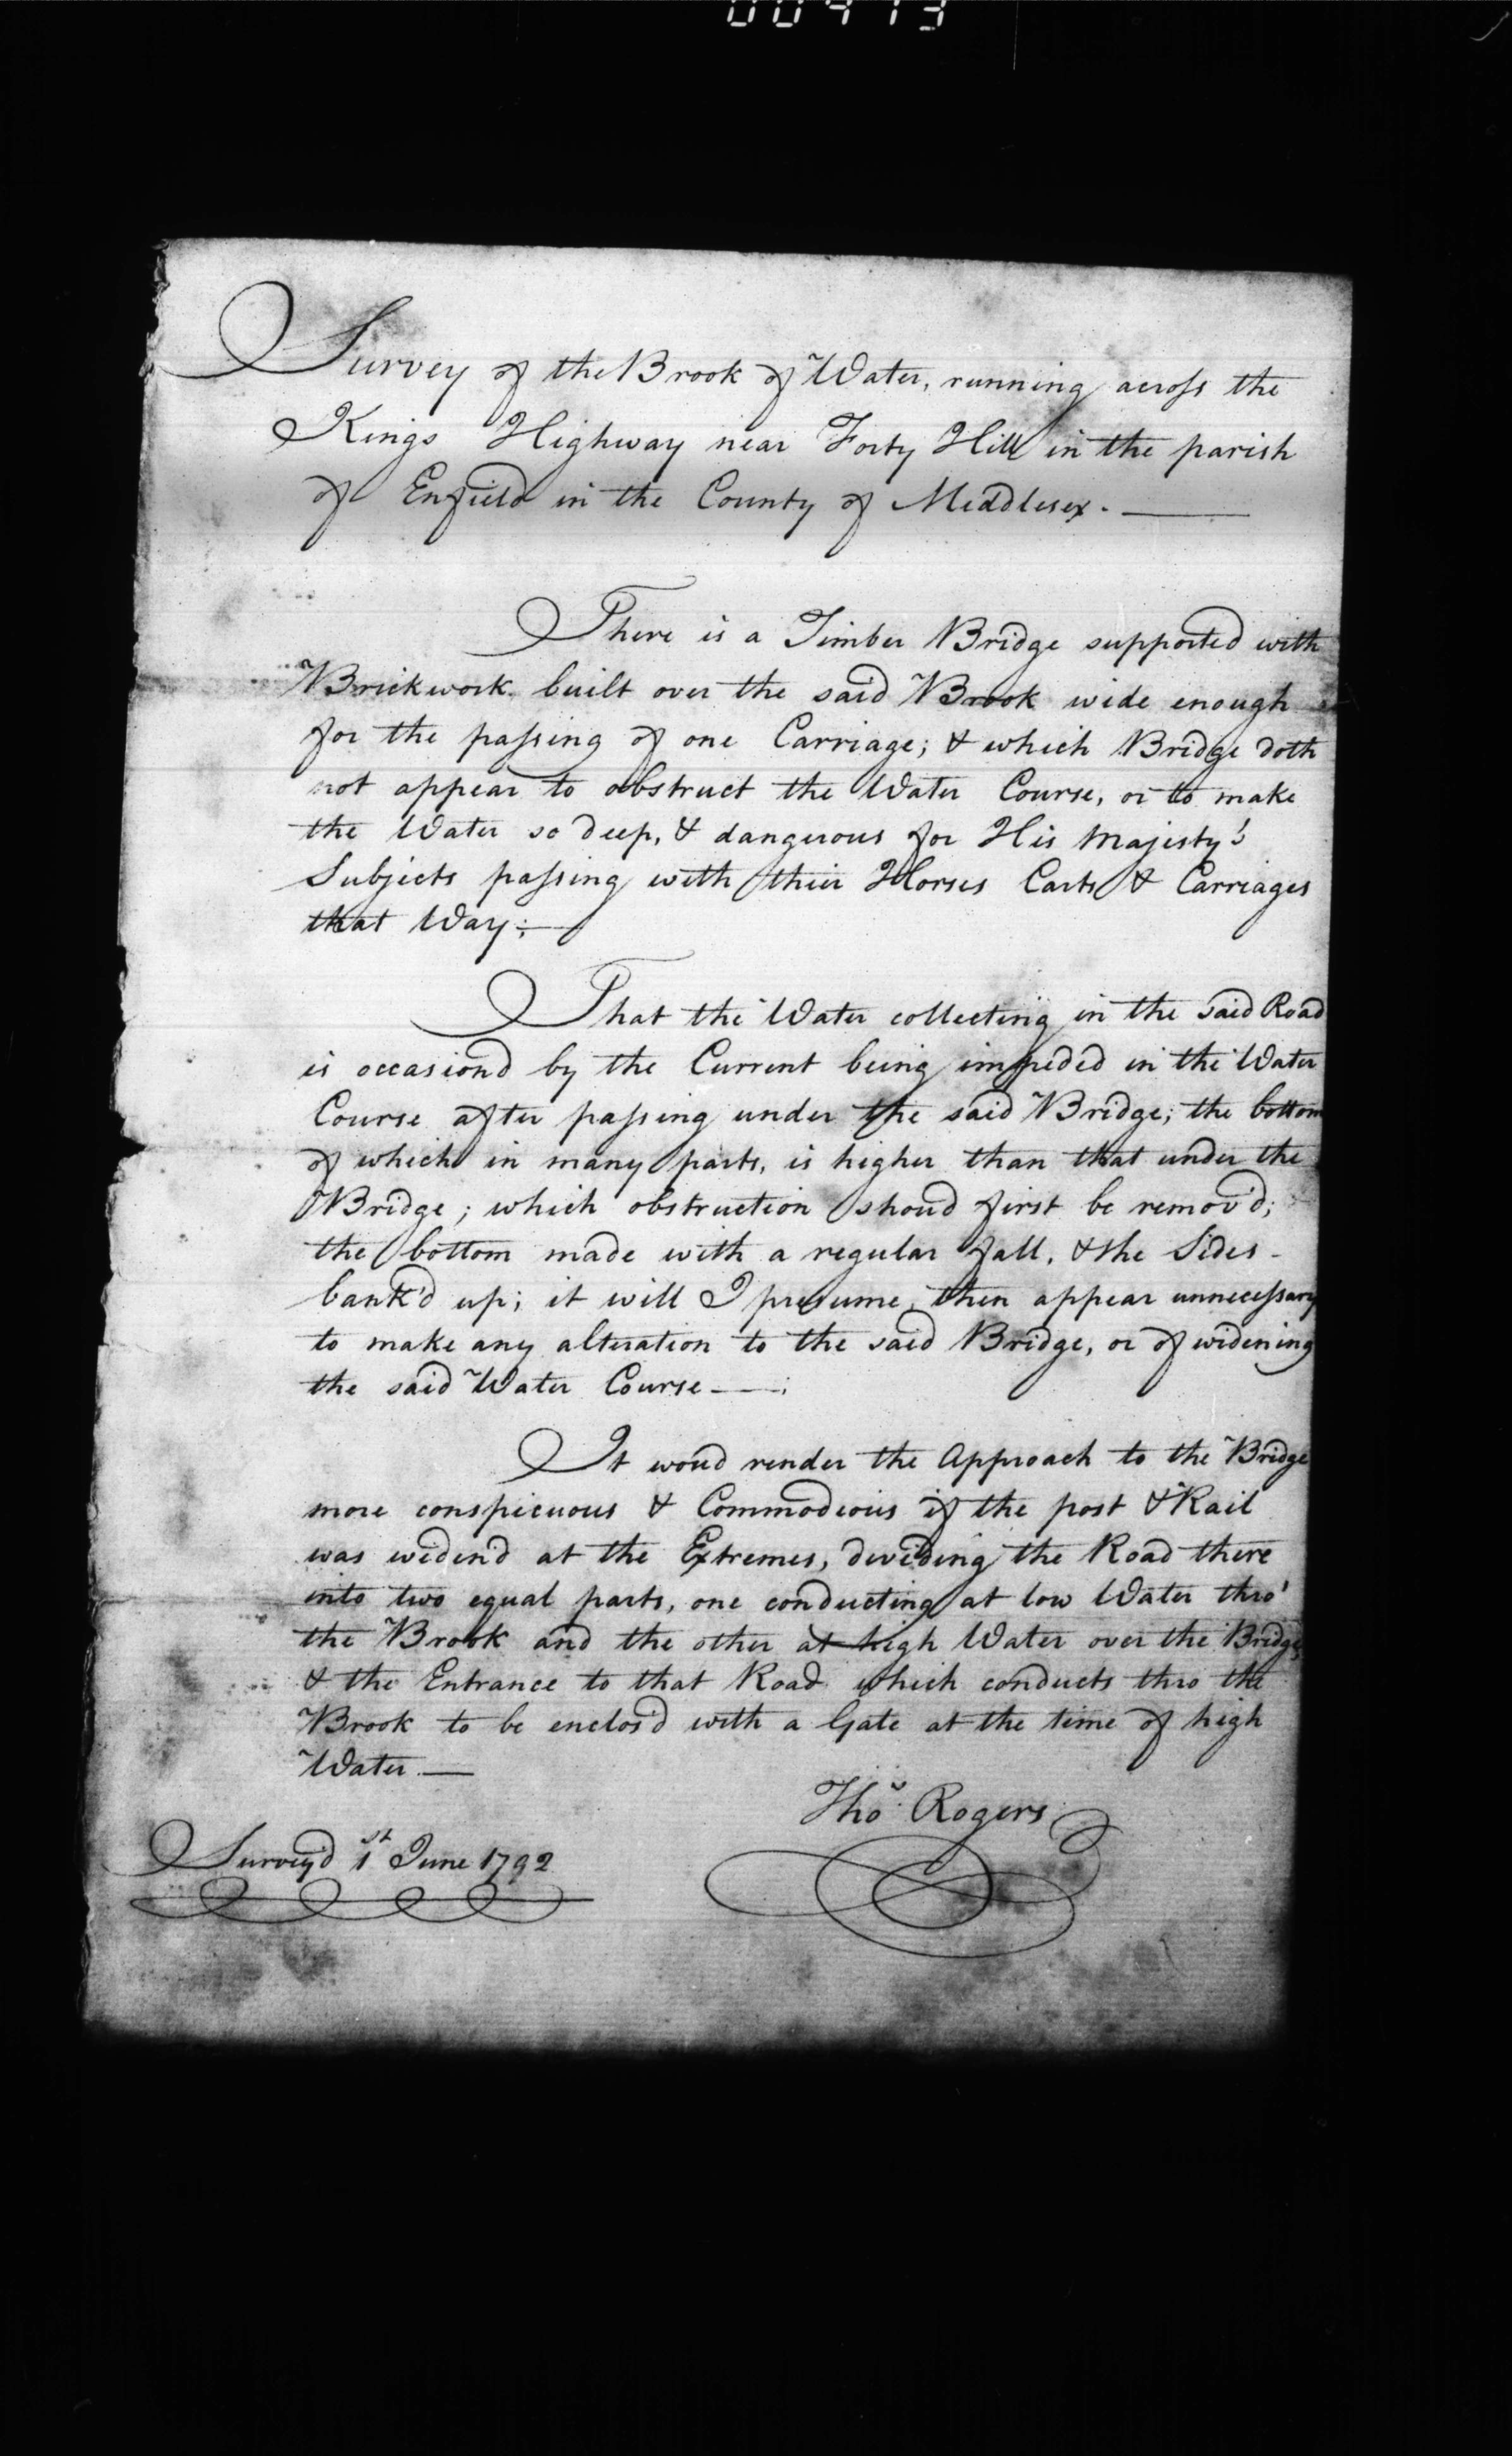 Survey of the Brook of Water, running across the
Kings Highway near Forty Hill in the parish
of Enfield in the County of Middlesex. —
There is a Timber Bridge supported with
Brickwork built over the said Brook wide enough
for the passing of one Carriage; & which Bridge doth
not appear to obstruct the Water Course, or to make
the Water so deep, & dangerous for His Majesty's
Subjects passing with their Horses Carts & Carriages
that Way; —
That the Water collecting in the said Road
is occasiond by the Current being impeded in the Water
Course after passing under the said Bridge; the bottom
of which in many parts, is higher than that under the
Bridge; which obstruction shoud first be remov'd;
the bottom made with a regular fall, & the Sides -
bank'd up; it will I presume, then appear unnecessary
to make any alteration to the said Bridge, or of widening
the said Water Course —;
It woud render the Approach to the Bridge
more conspicuous & Commodious if the post & Rail
was widen'd at the Extremes, deviding the Road there
into two equal parts, one conducting at low Water thro'
the Brook and the other at high Water over the Bridge,
& the Entrance to that Road which conducts thro the
Brook to be enclos'd with a Gate at the time of high
Water. —
Thos. Rogers
Survey'd 1st June 1792